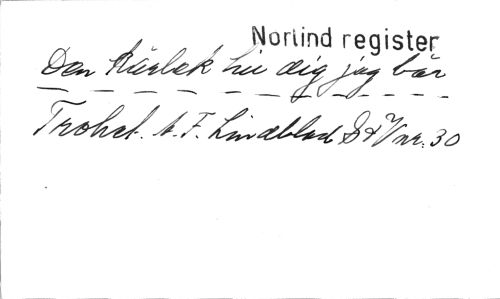 Norlind register
Den kärlek till dig jag bär
A. F. Lindblad S & V nr. 30